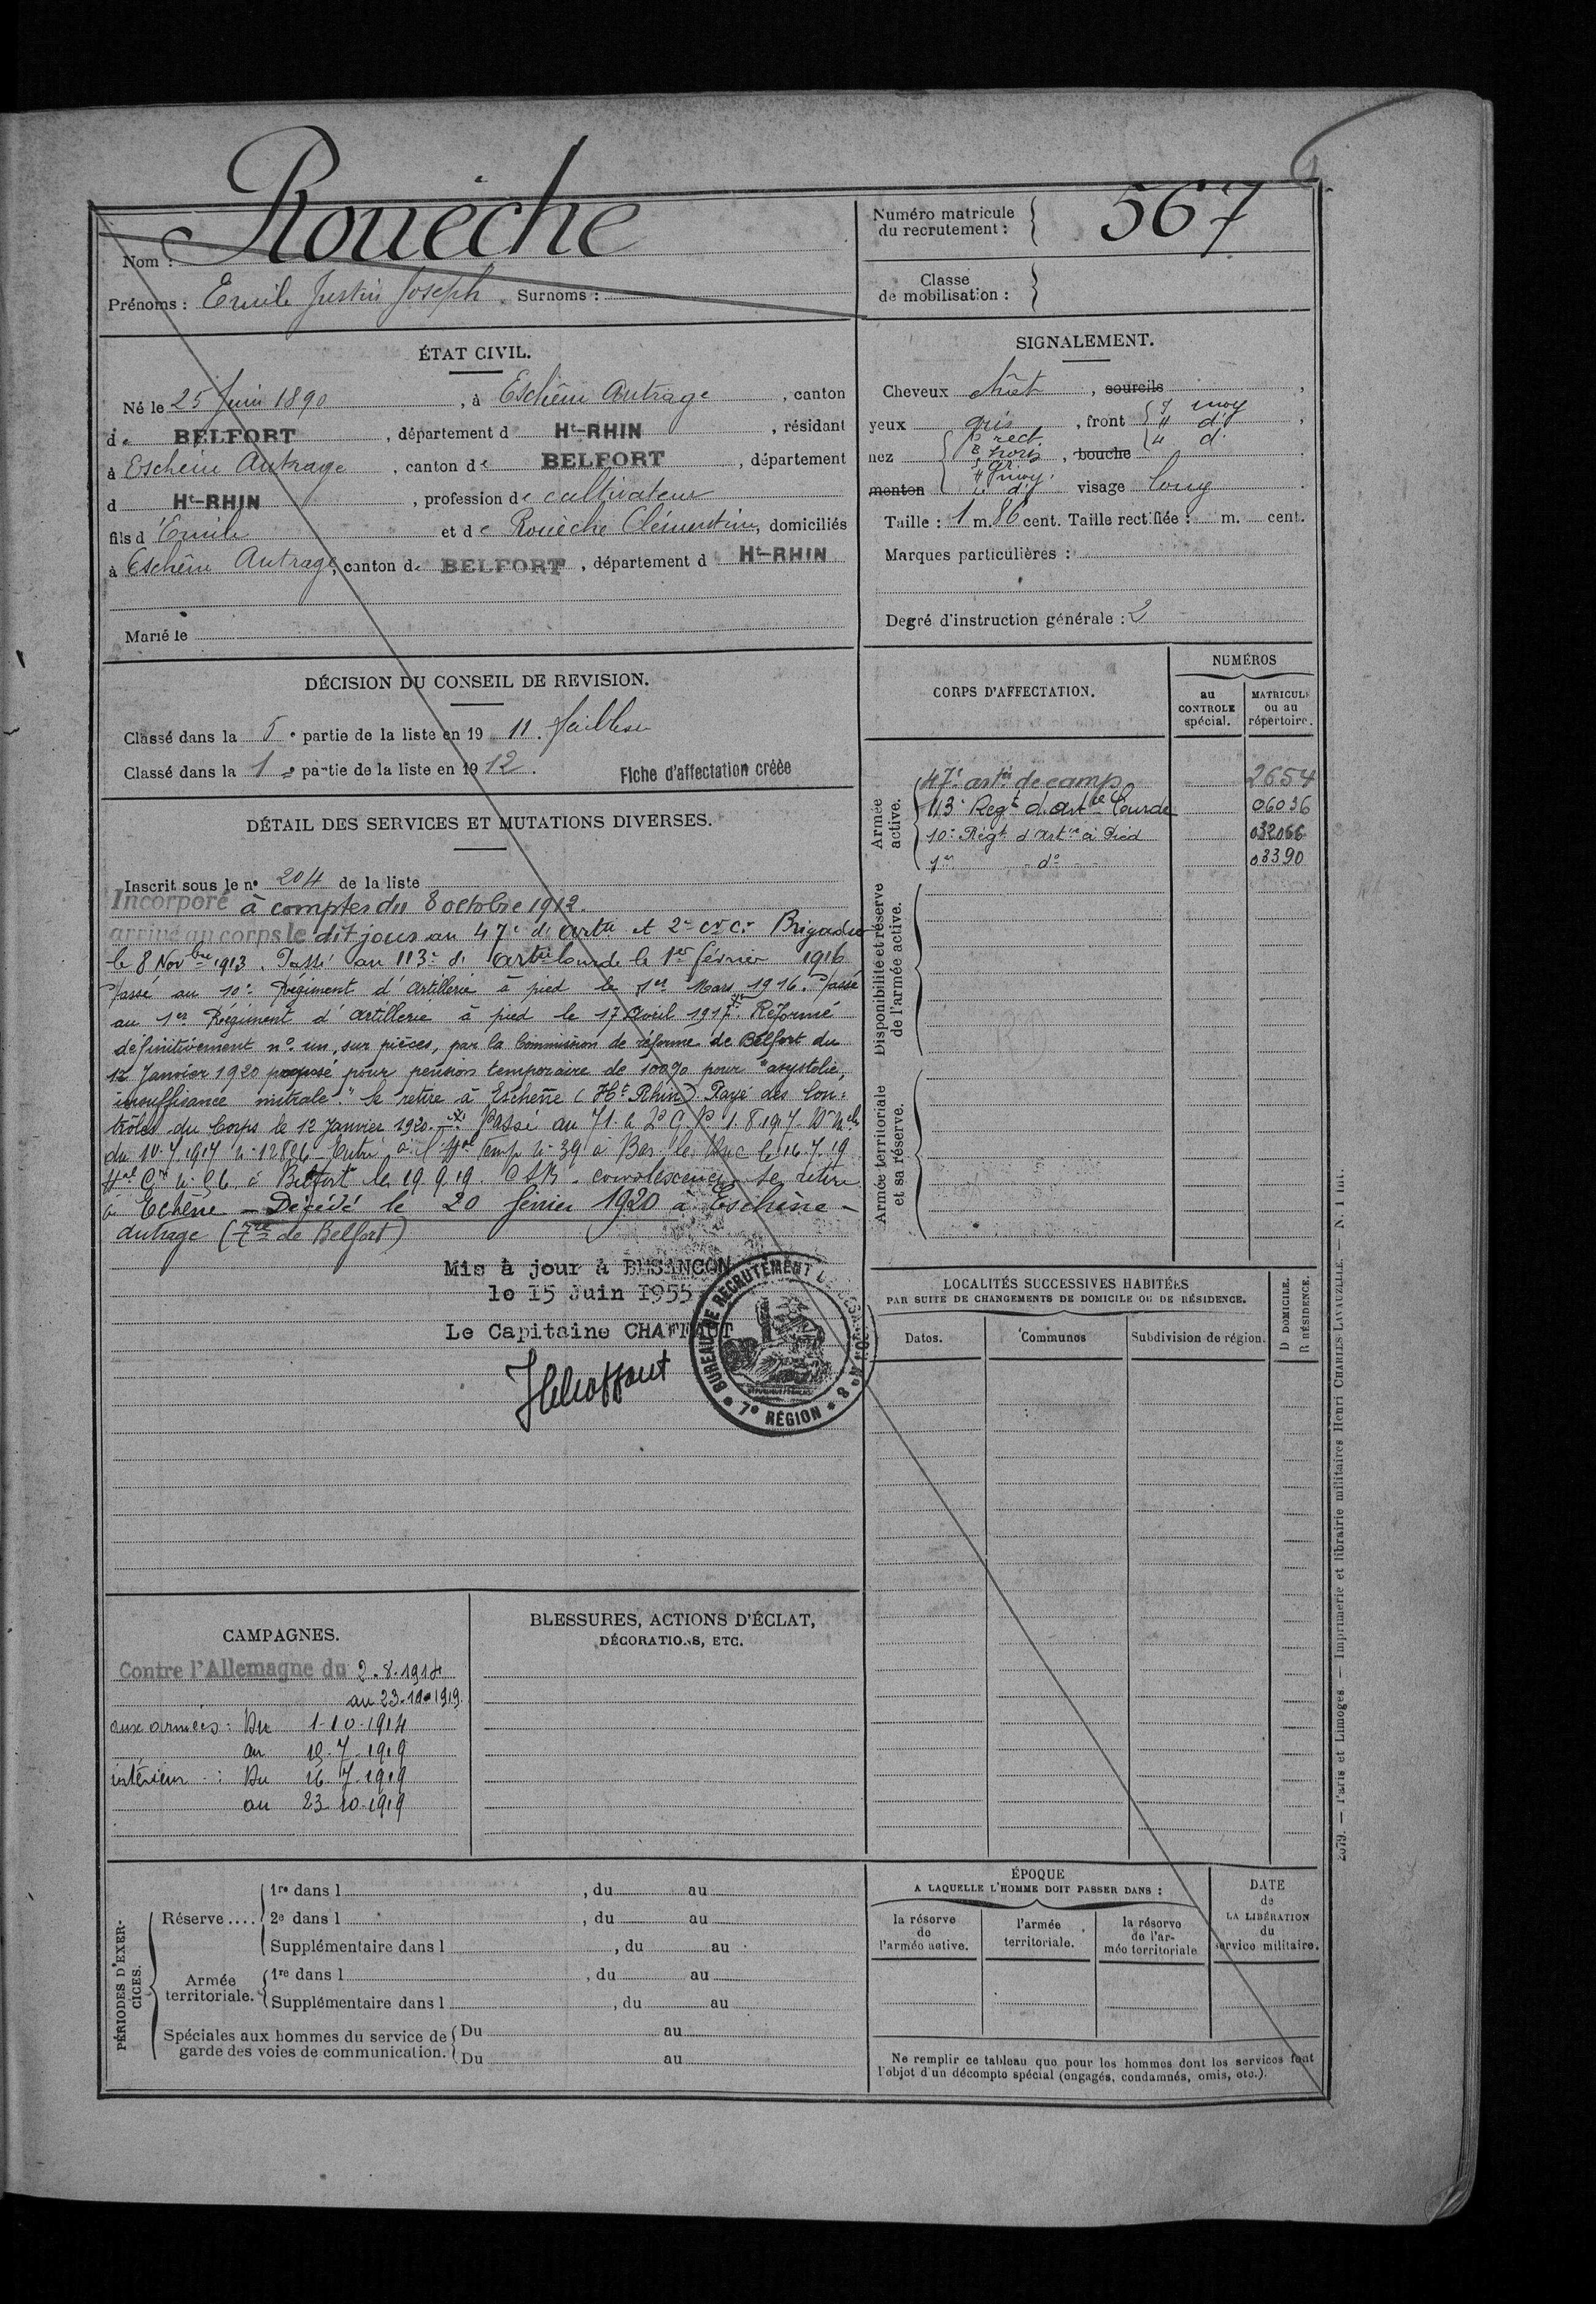 Nom : Rouèche
Prénoms : Emile Justin Joseph Surnoms :
Numéro matricule du recrutement : 567
Classe de mobilisation :
ÉTAT CIVIL.
Né le 25 Juin 1890, à Eschêne Autrage, canton
de BELFORT, département d Ht-RHIN, résidant
à Eschêne Autrage, canton de BELFORT, département
d Ht-RHIN, profession de cultivateur
fils d'Emile et de Rouèche Clémentine, domiciliés
à Eschêne Autrage, canton de BELFORT, département d Ht-RHIN
Marié le
SIGNALEMENT.
Cheveux chât, sourcils,
yeux gris, front moy
nez rect.
bouche
menton visage long
Taille : 1 m. 86 cent. Taille rectifiée : m. cent.
Marques particulières :
Degré d'instruction générale : 2
DÉCISION DU CONSEIL DE REVISION.
Classé dans la 5e partie de la liste en 1911. faiblesse
Classé dans la 1e partie de la liste en 1912.
Fiche d'affectation créée
CORPS D'AFFECTATION.
NUMÉROS
au CONTROLE spécial.
MATRICULE ou au répertoire.
Armée active.
47e artie de camp 2654
113e Regt d'artie Lourde 06036
10e Régt d'Artie à Pied 032066
1er do 03390
Disponibilité et réserve de l'armée active.
Armée territoriale et sa réserve.
DÉTAIL DES SERVICES ET MUTATIONS DIVERSES.
Inscrit sous le no 204 de la liste
Incorporé à compter du 8 octobre 1912.
arrivé au corps le dit jour au 47e d'artie et 2e cr cr Brigadier
le 8 Novbre 1913. Passé au 113e d'artie lourde le 1er février 1916
Passé au 10e Régiment d'Artillerie à pied le 1er Mars 1916. Passé
au 1er Régiment d'Artillerie à pied le 17 Avril 1917. Réformé
définitivement no un, sur pièces, par la Commission de réforme de Belfort du
12 Janvier 1920 proposé pour pension temporaire de 100% pour "asystolie,
insuffisance mitrale." Se retire à Eschêne (Ht Rhin). Rayé des Con-
trôles du Corps le 12 Janvier 1920. Passé au 71e 1.8.1917
du 10.7.1917 n. 12826 Entré à l'Hal Temp n. 39 à Bar le Duc le 16.7.19
à Belfort le 19.9.19. convalescence se retire
à Echêne - Décédé le 20 février 1920 à Eschêne -
Autrage (Tre de Belfort)
Mis à jour à BESANCON
le 15 Juin 1955
Le Capitaine CHAFFAUT
BUREAU DE RECRUTEMENT
7e RÉGION
LOCALITÉS SUCCESSIVES HABITÉES
PAR SUITE DE CHANGEMENTS DE DOMICILE OU DE RÉSIDENCE.
Dates.
Communes
Subdivision de région.
D DOMICILE.
R RÉSIDENCE.
CAMPAGNES.
Contre l'Allemagne du 2.8.1914
au 23.10.1919.
aux armées : Du 1-10-1914
au 15.7.1919
intérieur : Du 16.7.1919
au 23.10.1919
BLESSURES, ACTIONS D'ÉCLAT,
DÉCORATIONS, ETC.
PÉRIODES D'EXERCICES.
Réserve....
1re dans l , du au
2e dans l , du au
Supplémentaire dans l , du au
Armée territoriale.
1re dans l , du au
Supplémentaire dans l , du au
Spéciales aux hommes du service de garde des voies de communication.
Du au
Du au
ÉPOQUE
A LAQUELLE L'HOMME DOIT PASSER DANS :
la réserve de l'armée active.
l'armée territoriale.
la réserve de l'armée territoriale
DATE de LA LIBÉRATION du service militaire.
Ne remplir ce tableau que pour les hommes dont les services font
l'objet d'un décompte spécial (engagés, condamnés, omis, etc.).
2079. — Paris et Limoges. — Imprimerie et librairie militaires Henri CHARLES-LAVAUZELLE. — N. 1 int.